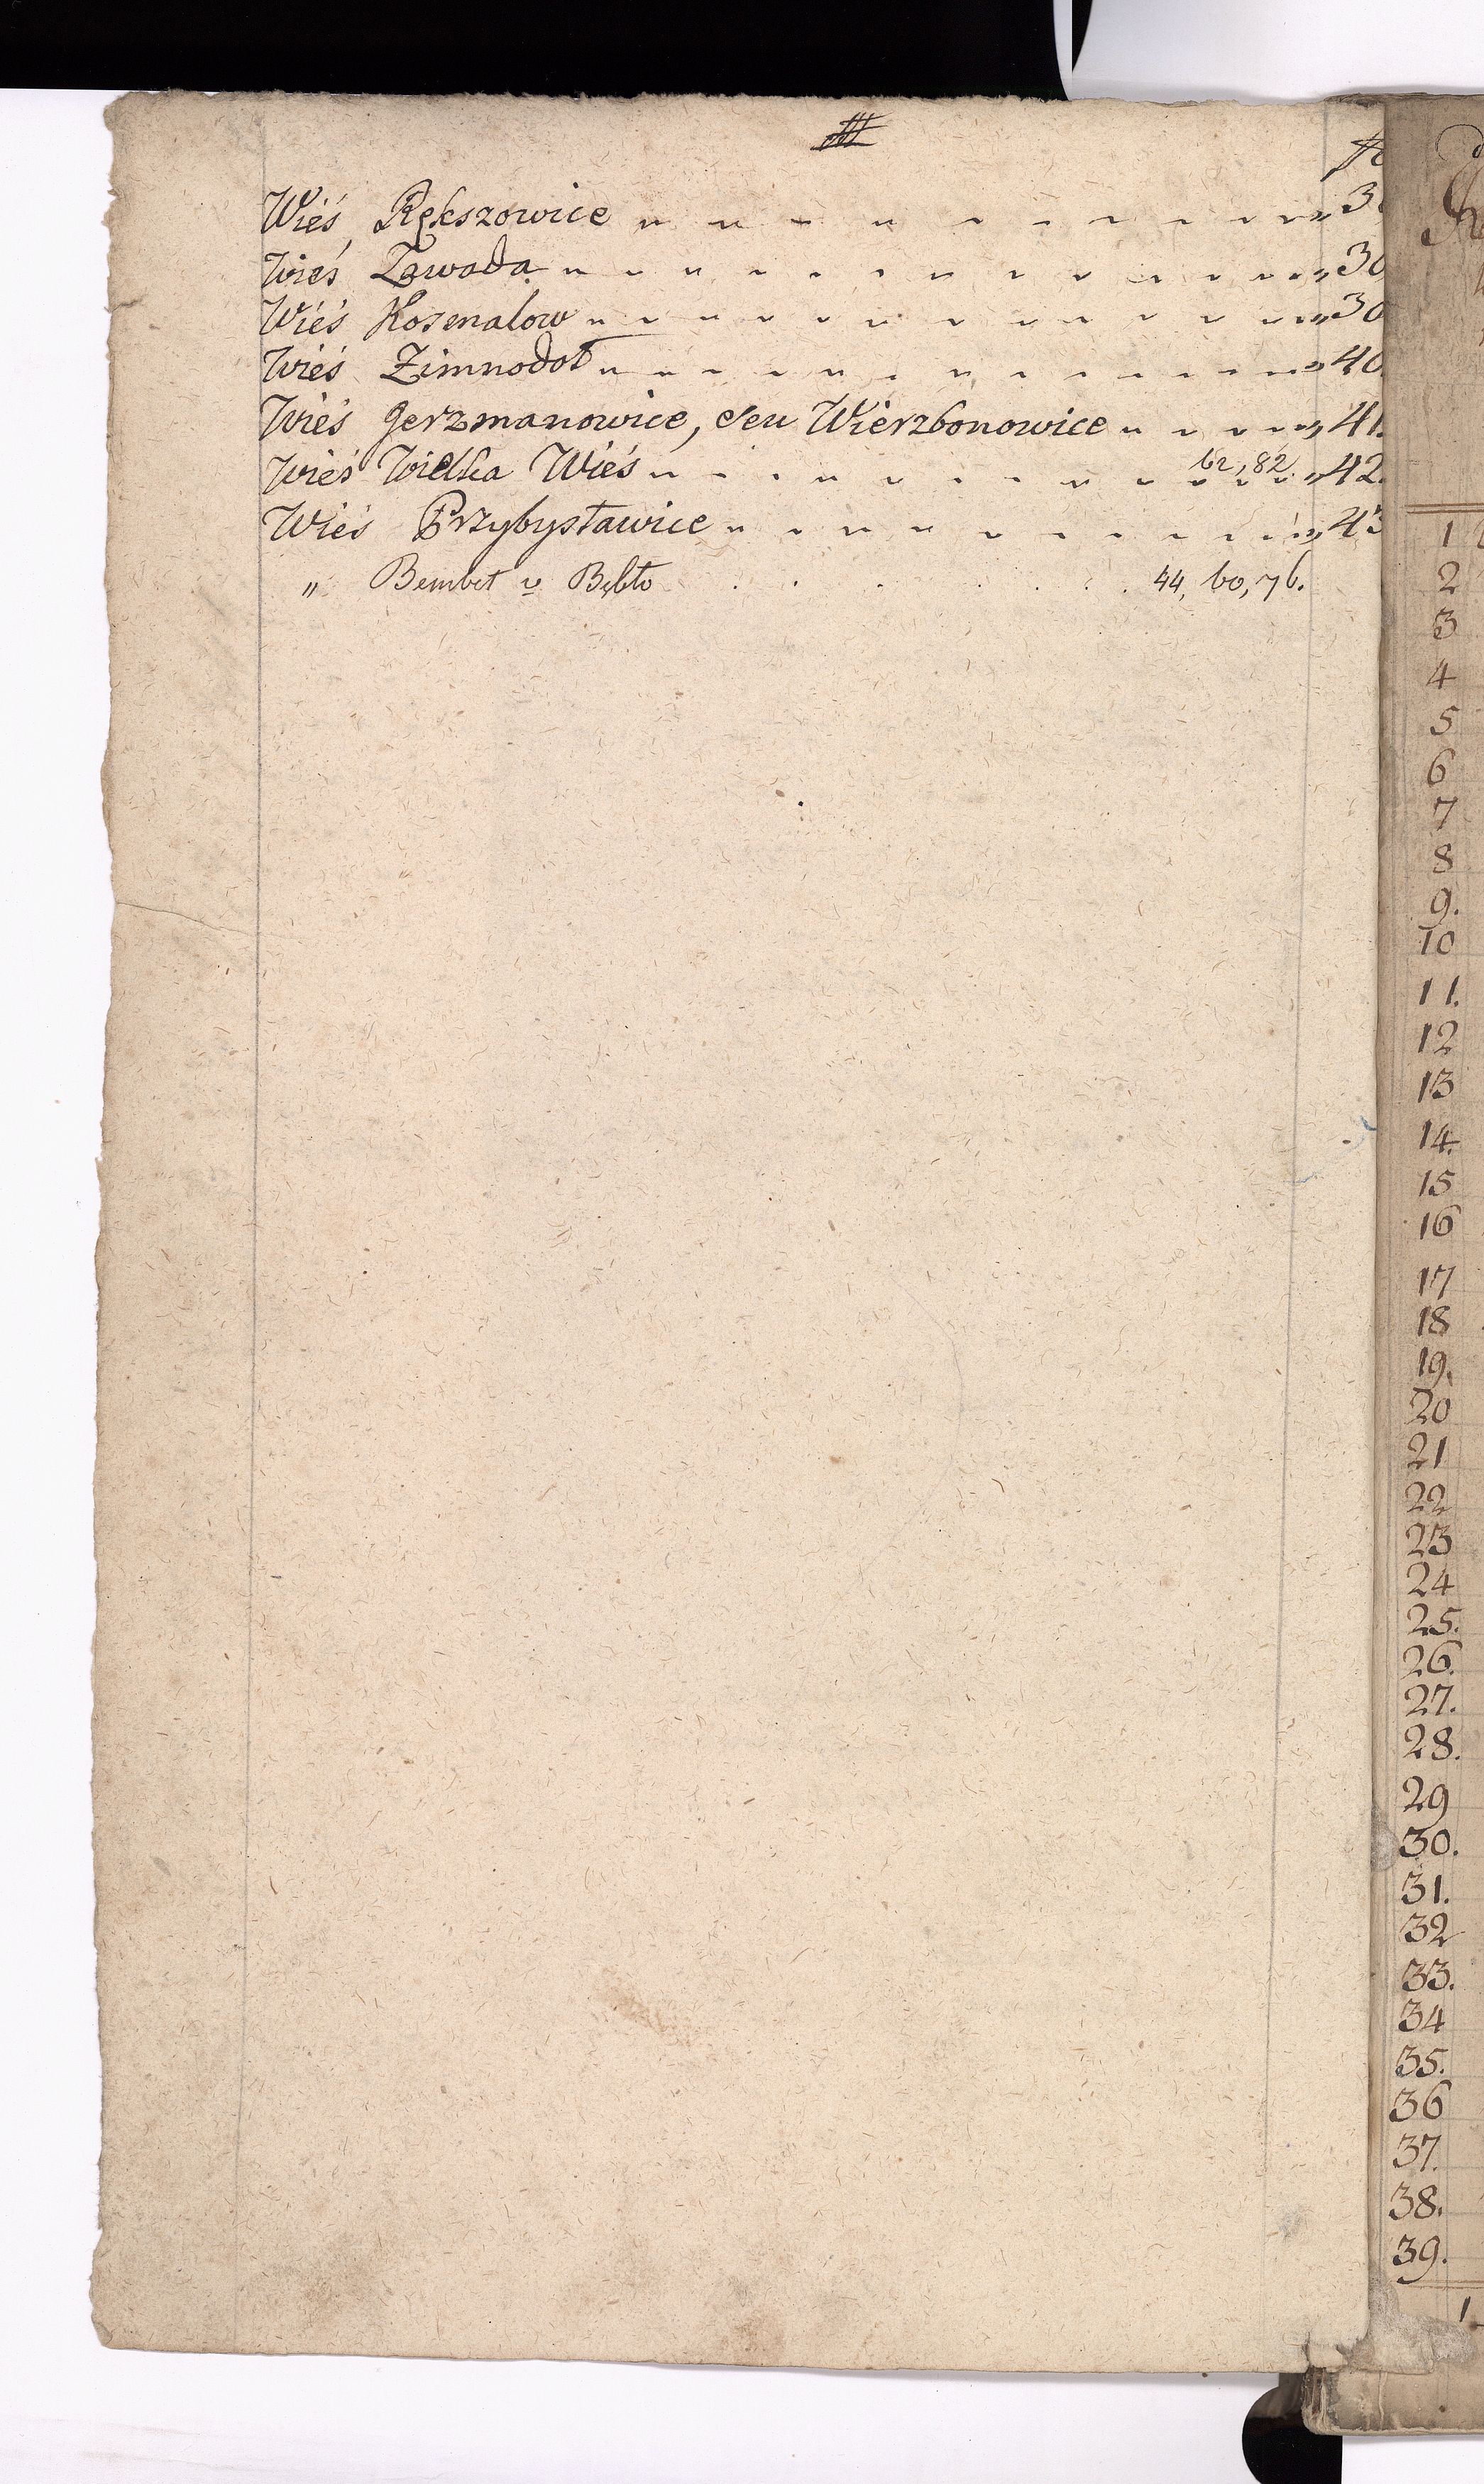 III
fo
Wieś Rększowice „ 3
Wieś Zawada „ 30
Wieś Kosmalow „ 30
Wieś Zimnodoł „ 40.
Wieś Jerzmanowice, seu Wierzbonowice „ 41.
Wieś Wielka Wieś 62, 82. „ 42.
Wieś Przybysławice „ 43
„ Bembeł v Bębło . . . . . . 44, 60, 76.
1
2
3
4
5
6
7
8
9.
10
11.
12
13
14.
15
16
17
18
19.
20
21
22
23
24
25.
26.
27.
28.
29
30.
31.
32
33.
34
35.
36
37.
38.
39.
1